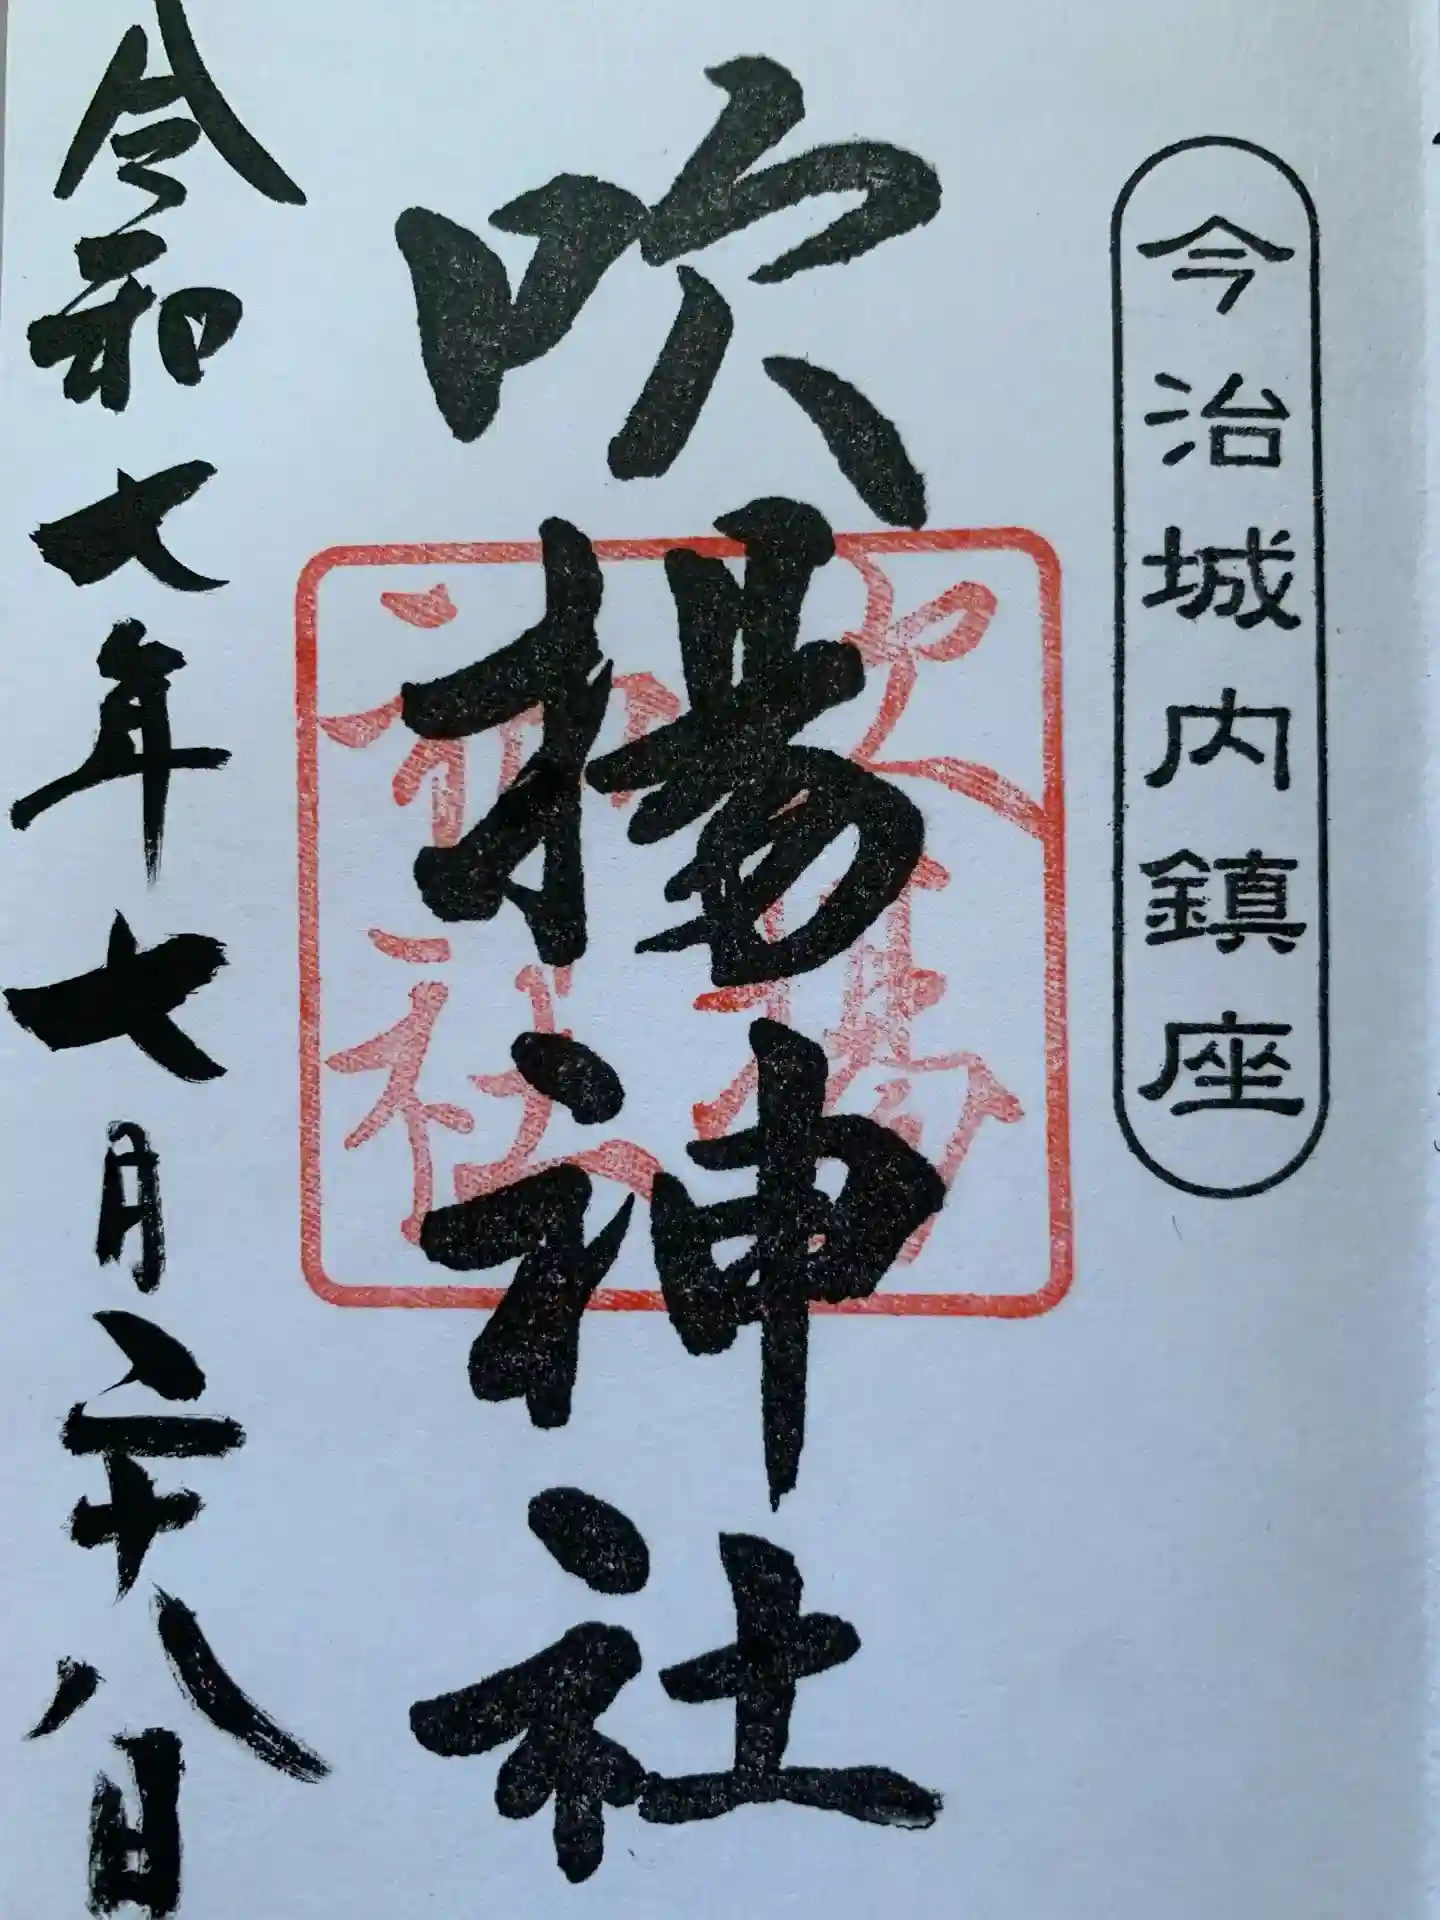 今治城内鎮座
吹揚神社
吹揚
神社
令和七年七月二十八日